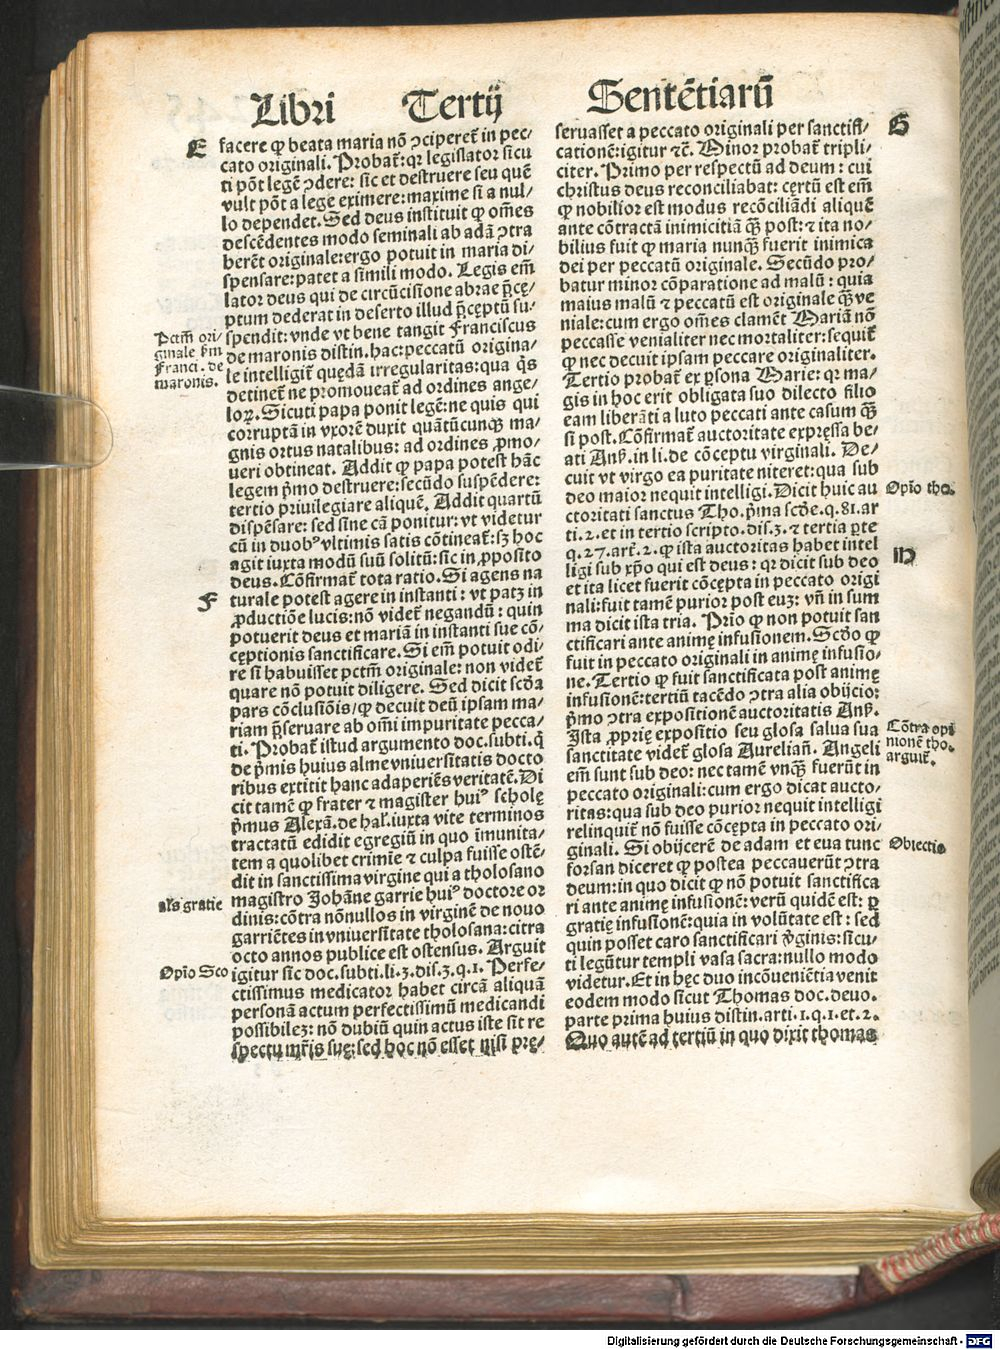 Libri Tertij Sentētiarū
E
facere ꝙ beata maria nō ↄciperet̄ in pec⸗
cato originali. Probat̄: qꝛ legislator sicu
ti pōt legē ↄdere: sic et destruere seu quē
vult pōt a lege eximere: maxime si a nul⸗
lo dependet. Sed deus instituit ꝙ om̄es
descēdentes modo seminali ab adā ↄtra
herēt originale: ergo potuit in maria di⸗
spensare: patet a simili modo. Legis em̄
lator deus qui de circūcisione abrae p̄cę⸗
ptum dederat in deserto illud p̄cęptū su⸗
spendit: vnde vt bene tangit Franciscus
de maronis distin. hac: peccatū origina⸗
le intelligit̄ quędā irregularitas: qua q̇s
detinet̄ ne promoueat̄ ad ordines ange⸗
loꝝ. Sicuti papa ponit legē: ne quis qui
corruptā in vxorē duxit quātūcunqꝫ ma⸗
gnis ortus natalibus: ad ordines ꝓmo⸗
ueri obtineat. Addit ꝙ papa potest hāc
legem p̄mo destruere: secūdo suspēdere:
tertio priuilegiare aliquē. Addit quartū
dispēsare: sed sine cā ponitur: vt videtur
cū in duobꝰ vltimis satis cōtineat̄: sꝫ hoc
agit iuxta modū suū solitū: sic in ꝓposito
deus. Cōfirmat̄ tota ratio. Si agens na
F
turale potest agere in instanti: vt patꝫ in
ꝓductiōe lucis: nō videt̄ negandū: quin
potuerit deus et mariā in instanti sue cō⸗
cęptionis sanctificare. Si em̄ potuit odi⸗
re si habuisset pctm̄ originale: non videt̄
quare nō potuit diligere. Sed dicit scd̄a
pars cōclusiōis/ ꝙ decuit deū ipsam ma⸗
riam p̄seruare ab om̄i impuritate pecca⸗
ti. Probat̄ istud argumento doc. subti. q̇
de p̄mis huius alme vniuersitatis docto
ribus extitit hanc adaperiēs veritatē. Di
cit tamē ꝙ frater ⁊ magister huiꝰ scholę
p̄mus Alexā. de hal̄. iuxta vite terminos
tractatū edidit egregiū in quo īmunita⸗
tem a quolibet crimīe ⁊ culpa fuisse ostē⸗
dit in sanctissima virgine qui a tholosano
magistro Johāne garrie huiꝰ doctore or
dinis: cōtra nōnullos in virginē de nouo
garriētes in vniuersitate tholosana: citra
octo annos publice est ostensus. Arguit
igitur sic doc. subti. li. 3. dis. 3. q. 1. Perfe⸗
ctissimus mediator habet circā aliquā
personā actum perfectissimū mediandi
possibilez: nō dubiū quin actus iste sit re
spectu mr̄is suę: sed hoc nō esset nisi prę⸗
Pctm̄ ori⸗
ginale ẜm
Franci. de
maronis.
al̄s gratie
Opīo Sco
seruasset a peccato originali per sanctifi⸗
cationē: igitur ⁊c̄. Minor probat̄ tripli⸗
citer. Primo per respectū ad deum: cui
christus deus reconciliabat: cęrtū est em̄
ꝙ nobilior est modus recōciliādi aliquē
ante cōtractā inimicitiā qꝫ̄ post: ⁊ ita no⸗
bilius fuit ꝙ maria nunqꝫ̄ fuerit inimica
dei per peccatū originale. Secūdo pro⸗
batur minor cōparatione ad malū: quia
maius malū ⁊ peccatū est originale qꝫ̄ ve
niale: cum ergo om̄es clamēt Mariā nō
peccasse venialiter nec mortaliter: sequit̄
ꝙ nec decuit ipsam peccare originaliter.
Tertio probat̄ ex ꝑsona Marie: qꝛ ma⸗
gis in hoc erit obligata suo dilecto filio
eam liberāti a luto peccati ante casum qꝫ̄
si post. Cōfirmat̄ auctoritate expręssa be⸗
ati Anẜ. in li. de cōceptu virginali. De⸗
cuit vt virgo ea puritate niteret̄: qua sub
deo maior nequit intelligi. Dicit huic au
ctoritati sanctus Tho. p̄ma scd̄e. q. 81. ar
ti. 2. et in tertio scripto. dis. 3. ⁊ tertia ꝑte
q. 27. art̄. 2. ꝙ ista auctoritas habet intel
ligi sub xp̄o qui est deus: qꝛ dicit sub deo
et ita licet fuerit cōcępta in peccato origi
nali: fuit tamē purior post euꝫ: vn̄ in sum
ma dicit ista tria. Prīo ꝙ non potuit san
ctificari ante animę infusionem. Scd̄o ꝙ
fuit in peccato originali in animę infusio⸗
ne. Tertio ꝙ fuit sanctificata post animę
infusionē: tertiū tacēdo ↄtra alia obijcio:
p̄mo ↄtra expositionē auctoritatis Anẜ.
Ista ꝓprię expositio seu glosa salua sua
sanctitate videt̄ glosa Aurelian̄. Angeli
em̄ sunt sub deo: nec tamē vnqꝫ̄ fuerūt in
peccato originali: cum ergo dicat aucto⸗
ritas: qua sub deo purior nequit intelligi
relinquit̄ nō fuisse cōcępta in peccato ori⸗
ginali. Si obijcerē de adam et eua tunc
forsan diceret ꝙ postea peccauerūt ↄtra
deum: in quo dicit ꝙ nō potuit sanctifica
ri ante animę infusionē: verū quidē est: ꝑ
gratię infusionē: quia in volūtate est: sed
quin posset caro sanctificari v̇ginis: sicu⸗
ti legūtur templi vasa sacra: nullo modo
videtur. Et in hęc duo incōueniētia venit
eodem modo sicut Thomas doc. deuo.
parte prima huius distin. arti. 1. q. 1. et. 2.
Quo autē ad tertiū in quo dixit thomas
G
Opīo tho.
H
Cōtra opī
nionē tho.
arguit̄.
Obiectio
Digitalisierung gefördert durch die Deutsche Forschungsgemeinschaft - DFG